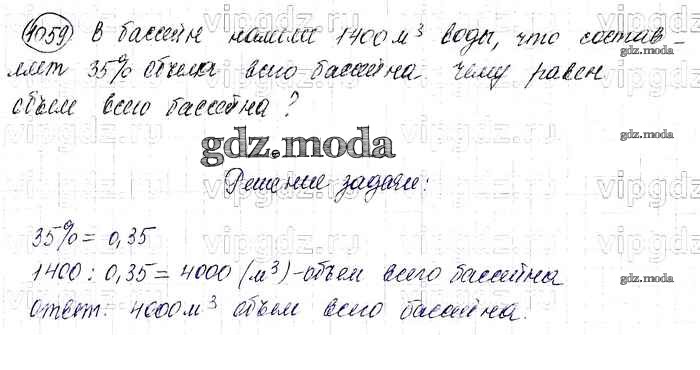 1059 В бассейн налили 1400 м³ воды, что состав-
ляет 35% объема всего бассейна. Чему равен
объем всего бассейна?
gdz.moda
Решение задачи:
35% = 0,35
1400 : 0,35 = 4000 (м³) - объем всего бассейна
Ответ: 4000 м³ объем всего бассейна.